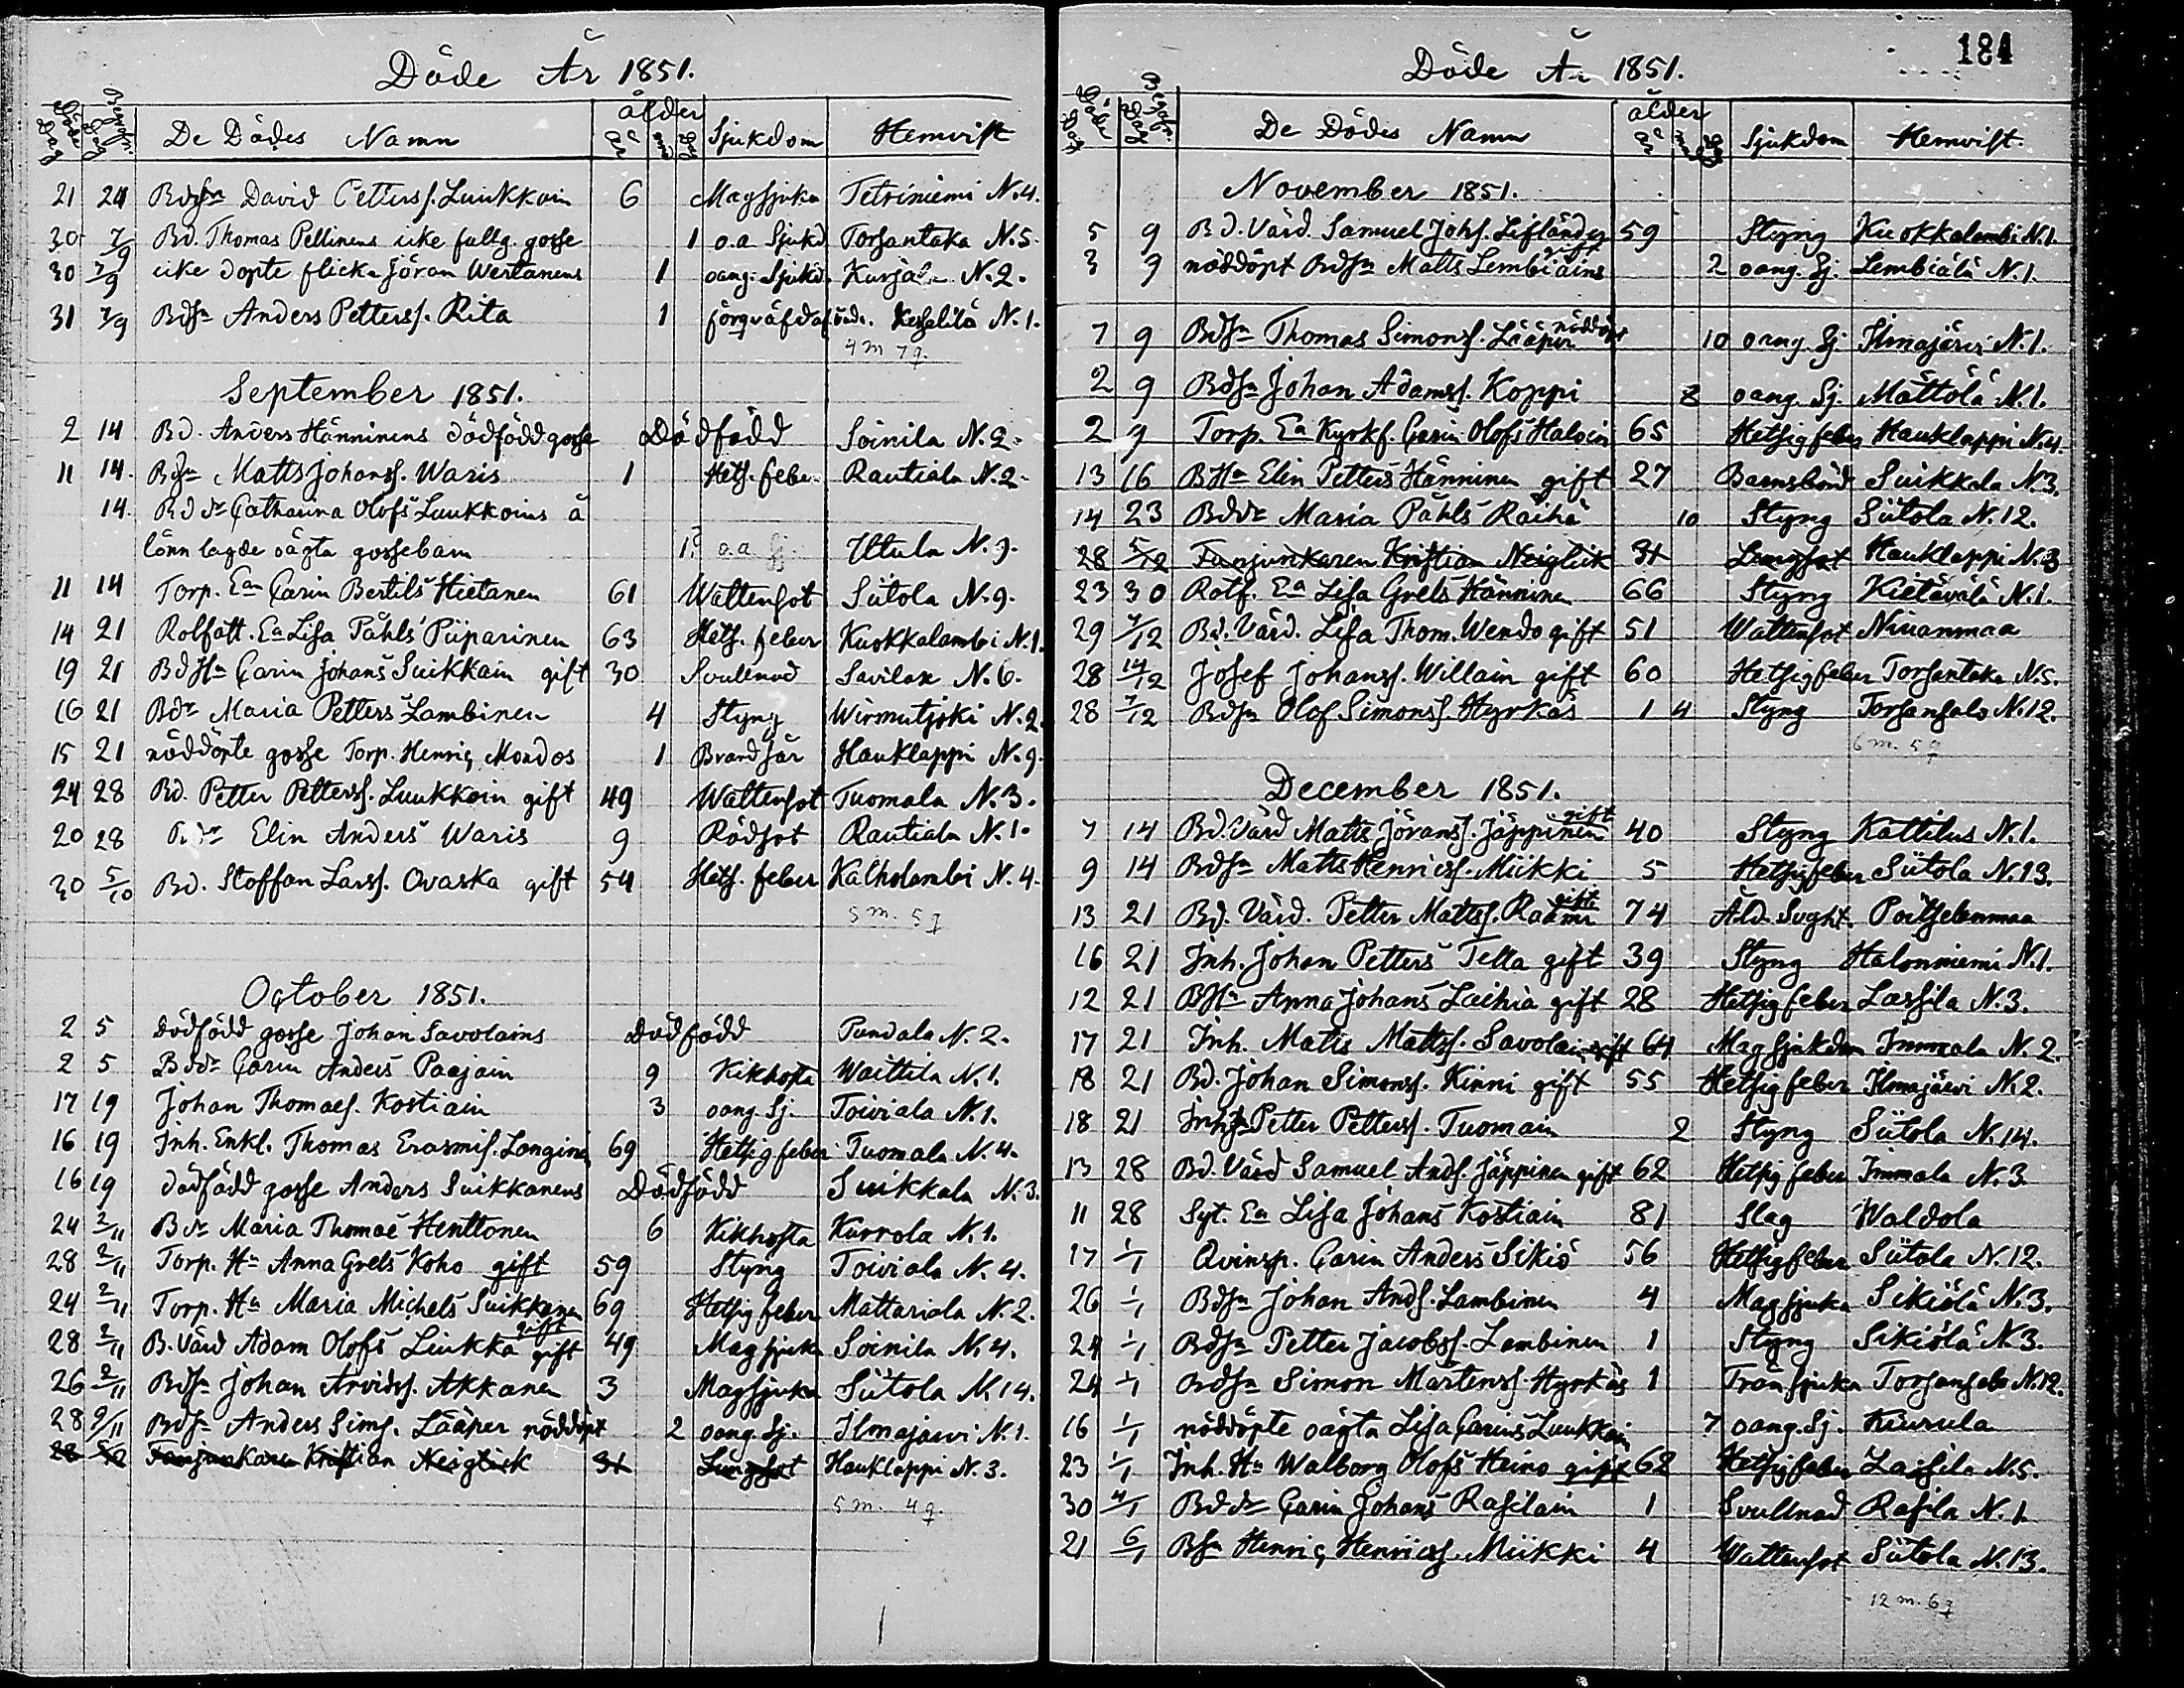 Döde År 1851.
Döde Dag Begrafn. Dag De Dödes Namn ålder år mn dag Sjukdom Hemvist
21 24 Bdsn Davið Petterss. Luukkain 6 Magsjuka Tetriniemi N.4.
30 7/9 Bd. Thomas Pellinens icke fullg. gosse 1 o.a Sjukd Torsantaka N.5.
30 7/9 icke döpte flicka Jöran Wertanens 1 oang. Sjukd. Kurjala N.2.
31 7/9 Bdsn Anders Petterss. Rita 1 Kesselilä N.1.
4 m 7 q.
September 1851.
2 14 Bd. Anders Hänninens dödfödd gosse Dödfödd Soinila N.2.
11 14. Bdsn Matts Johanss. Waris 1 Hets. feber Rautiala N.2.
14. Bddr Catharina Olofs Luukkoins å
lönn lagde oägta gossebarn 1? o.a Sj. Uttula N.9.
11 14 Torp. Ea Carin Bertils Hietanen 61 Wattensot Siitola N.9.
14 21 Rotfatt. Ea Lisa Påhls Piiparinen 63 Hets. feber Kuokkalambi N.1.
19 21 BdHu Carin Johans Suikkain gift 30 Svullnad Savilax N.6.
16 21 Bdr Maria Petters Lambinen 4 Styng Wirmutjoki N.2.
15 21 nöddöpte gosse Torp. Henric Mondos 1 Brandsår Hauklappi N.9.
24 28 Bd. Petter Petterss. Luukkoin gift 49 Wattensot Tuomala N.3.
20 28 Bdr Elin Anders Waris 9 Rödsot Rautiala N.1.
30 5/10 Bd. Staffan Larss. Ovaska gift 54 Hets. feber Kalholambi N.4.
5 m. 5 q
October 1851.
2 5 Dödfödd gosse Johan Savolains Dödfödd Pundala N.2.
2 5 Bddr Carin Anders Paajain 9 Kikhosta Waittila N.1.
17 19 Johan Thomaes. Kostiain 3 oang. Sj. Toiviala N.1.
16 19 Inh. Enkl. Thomas Erasmis. Longine 69 Hetsigfeber Tuomala N.4.
16 19 dödfödd gosse Anders Suikkanens Dödfödd Suikkala N.3.
24 2/11 Bdr Maria Thomae Henttonen 6 Kikhosta Kurrola N.1.
28 2/11 Torp. Hu Anna Grels Koho gift 59 Styng Toiviala N.4.
24 2/11 Torp. Hu Maria Michels Suikkanen gift 69 Hetsig feber Mattariala N.2.
28 2/11 B. Värd Adam Olofs Liukka gift 49 Magsjuka Soinila N.4.
26 2/11 Bdsn Johan Arvidss. Akkanen 3 Magsjuka Siitola N.14.
28 9/11 Bdsn Anders Sims. Lääper nöddöpt 2 oang. Sj. Ilmajärvi N.1.
28 Fanjunkaren Kristian Neiglick 31 Lungsot Hauklappi N.3.
5 m. 4 q.
184
Döde År 1851.
Döde Dag Begrafn. Dag De Dödes Namn ålder år mn dag Sjukdom Hemvist.
November 1851.
5 9 Bd. Värd. Samuel Johs. Lifländer gift 59 Styng Kuokkalambi N.1.
3 9 nöddöpt Bdsn Matts Lembiäins 2 oang. Sj. Lembiälä N.1.
7 9 Bdsn Thomas Simonss. Lääper nöddöpt 10 oang. Sj. Ilmajärvi N.1.
2 9 Bdsn Johan Adamss. Koppi 8 oang. Sj. Mättölä N.1.
2 9 Torp. Ea Kyrkf. Carin Olofs Haloin 65 Hetsigfeber Hauklappi N.4.
13 16 BHu Elin Petters Hänninen gift 27 Barnsbörd Suikkala N.3.
14 23 Bddr Maria Påhls Raihä 10 Styng Siitola N.12.
28 5/12 Fanjunkaren Kristian Neiglick 31 Lungsot Hauklappi N.3
23 30 Rotf. Ea Lisa Grels Hänninen 66 Styng Kietävälä N.1.
29 7/12 Bd. Värd. Lisa Thom. Wendo gift 51 Wattensot Niuanmaa
28 14/12 Josef Johanss. Willain gift 60 Hetsigfeber Torsantaka N.5.
28 7/12 Bdsn Olof Simonss. Hyrkäs 1 4 Styng Torsansalo N.12.
6 m. 5 q
December 1851.
7 14 Bd. Värd Matts Jöranss. Jäppinen gift 40 Styng Kattilus N.1.
9 14 Bdsn Matts Henricss. Miikki 5 Hetsigfeber Siitola N.13.
13 21 Bd. Värd. Petter Mattss. Raami gift 74 Åld. Svght. Poitselanmaa
16 21 Inh. Johan Petters Tella gift 39 Styng Halonniemi N.1.
12 21 BHu Anna Johans Laihia gift 28 Hetsigfeber Lassila N.3.
17 21 Inh. Matts Mattss. Savolain gift 64 Magsjukdom Immala N.2.
18 21 Bd. Johan Simonss. Kinni gift 55 Hetsigfeber Ilmajärvi N.2.
18 21 Inhsn Petter Petterss. Tuomain 2 Styng Siitola N.14.
13 28 Bd. Värd Samuel Ands. Jäppinen gift 62 Hetsig feber Immala N.3.
11 28 Syt. Ea Lisa Johans Kostiain 81 Slag Waldola
17 1/1 Qvinsp. Carin Anders Sikiö 56 Hetsigfeber Siitola N.12.
26 1/1 Bdsn Johan Ands. Lambinen 4 Magsjuka Sikiölä N.3.
24 1/1 Bdsn Petter Jacobss. Lambinen 1 Styng Sikiölä N.3.
24 1/1 Bdsn Simon Mårtenss. Hyrkäs 1 Tränsjuka Torsansalo N.12.
16 1/1 nöddöpte oägta Lisa Carins Luukkain 7 oang. Sj. Kiurula
23 1/1 Inh. Hu Walborg Olofs Heino gift 62 Hetsigfeber Lassila N.5.
30 4/1 Bddr Carin Johans Rasilain 1 Svullnad Rasila N.1.
21 6/1 Bsn Henric Henricss. Miikki 4 Wattensot Siitola N.13.
12 m. 6 q